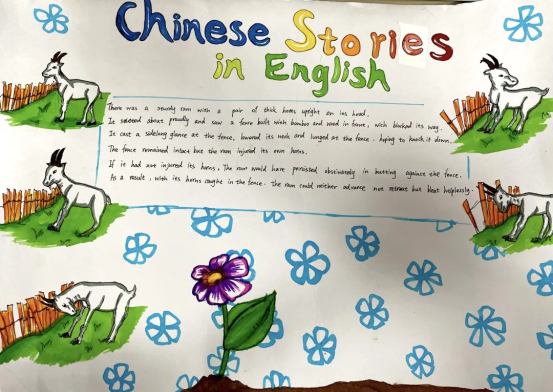 Chinese Stories
in English
There was a sturdy ram with a pair of thick horns upright on its head.
It about proudly and saw a fence built with bamboo and wood in front, which blocked its way.
It cast a sidelong glance at the fence, lowered its neck and lunged at the fence, hoping to knock it down.
The fence remained intact but the ram injured its own horns.
If it had not injured its horns, The ram would have persisted obstinately in butting against the fence.
As a result, with its horns caught in the fence. The ram could neither advance not retreat but bleat helplessly.